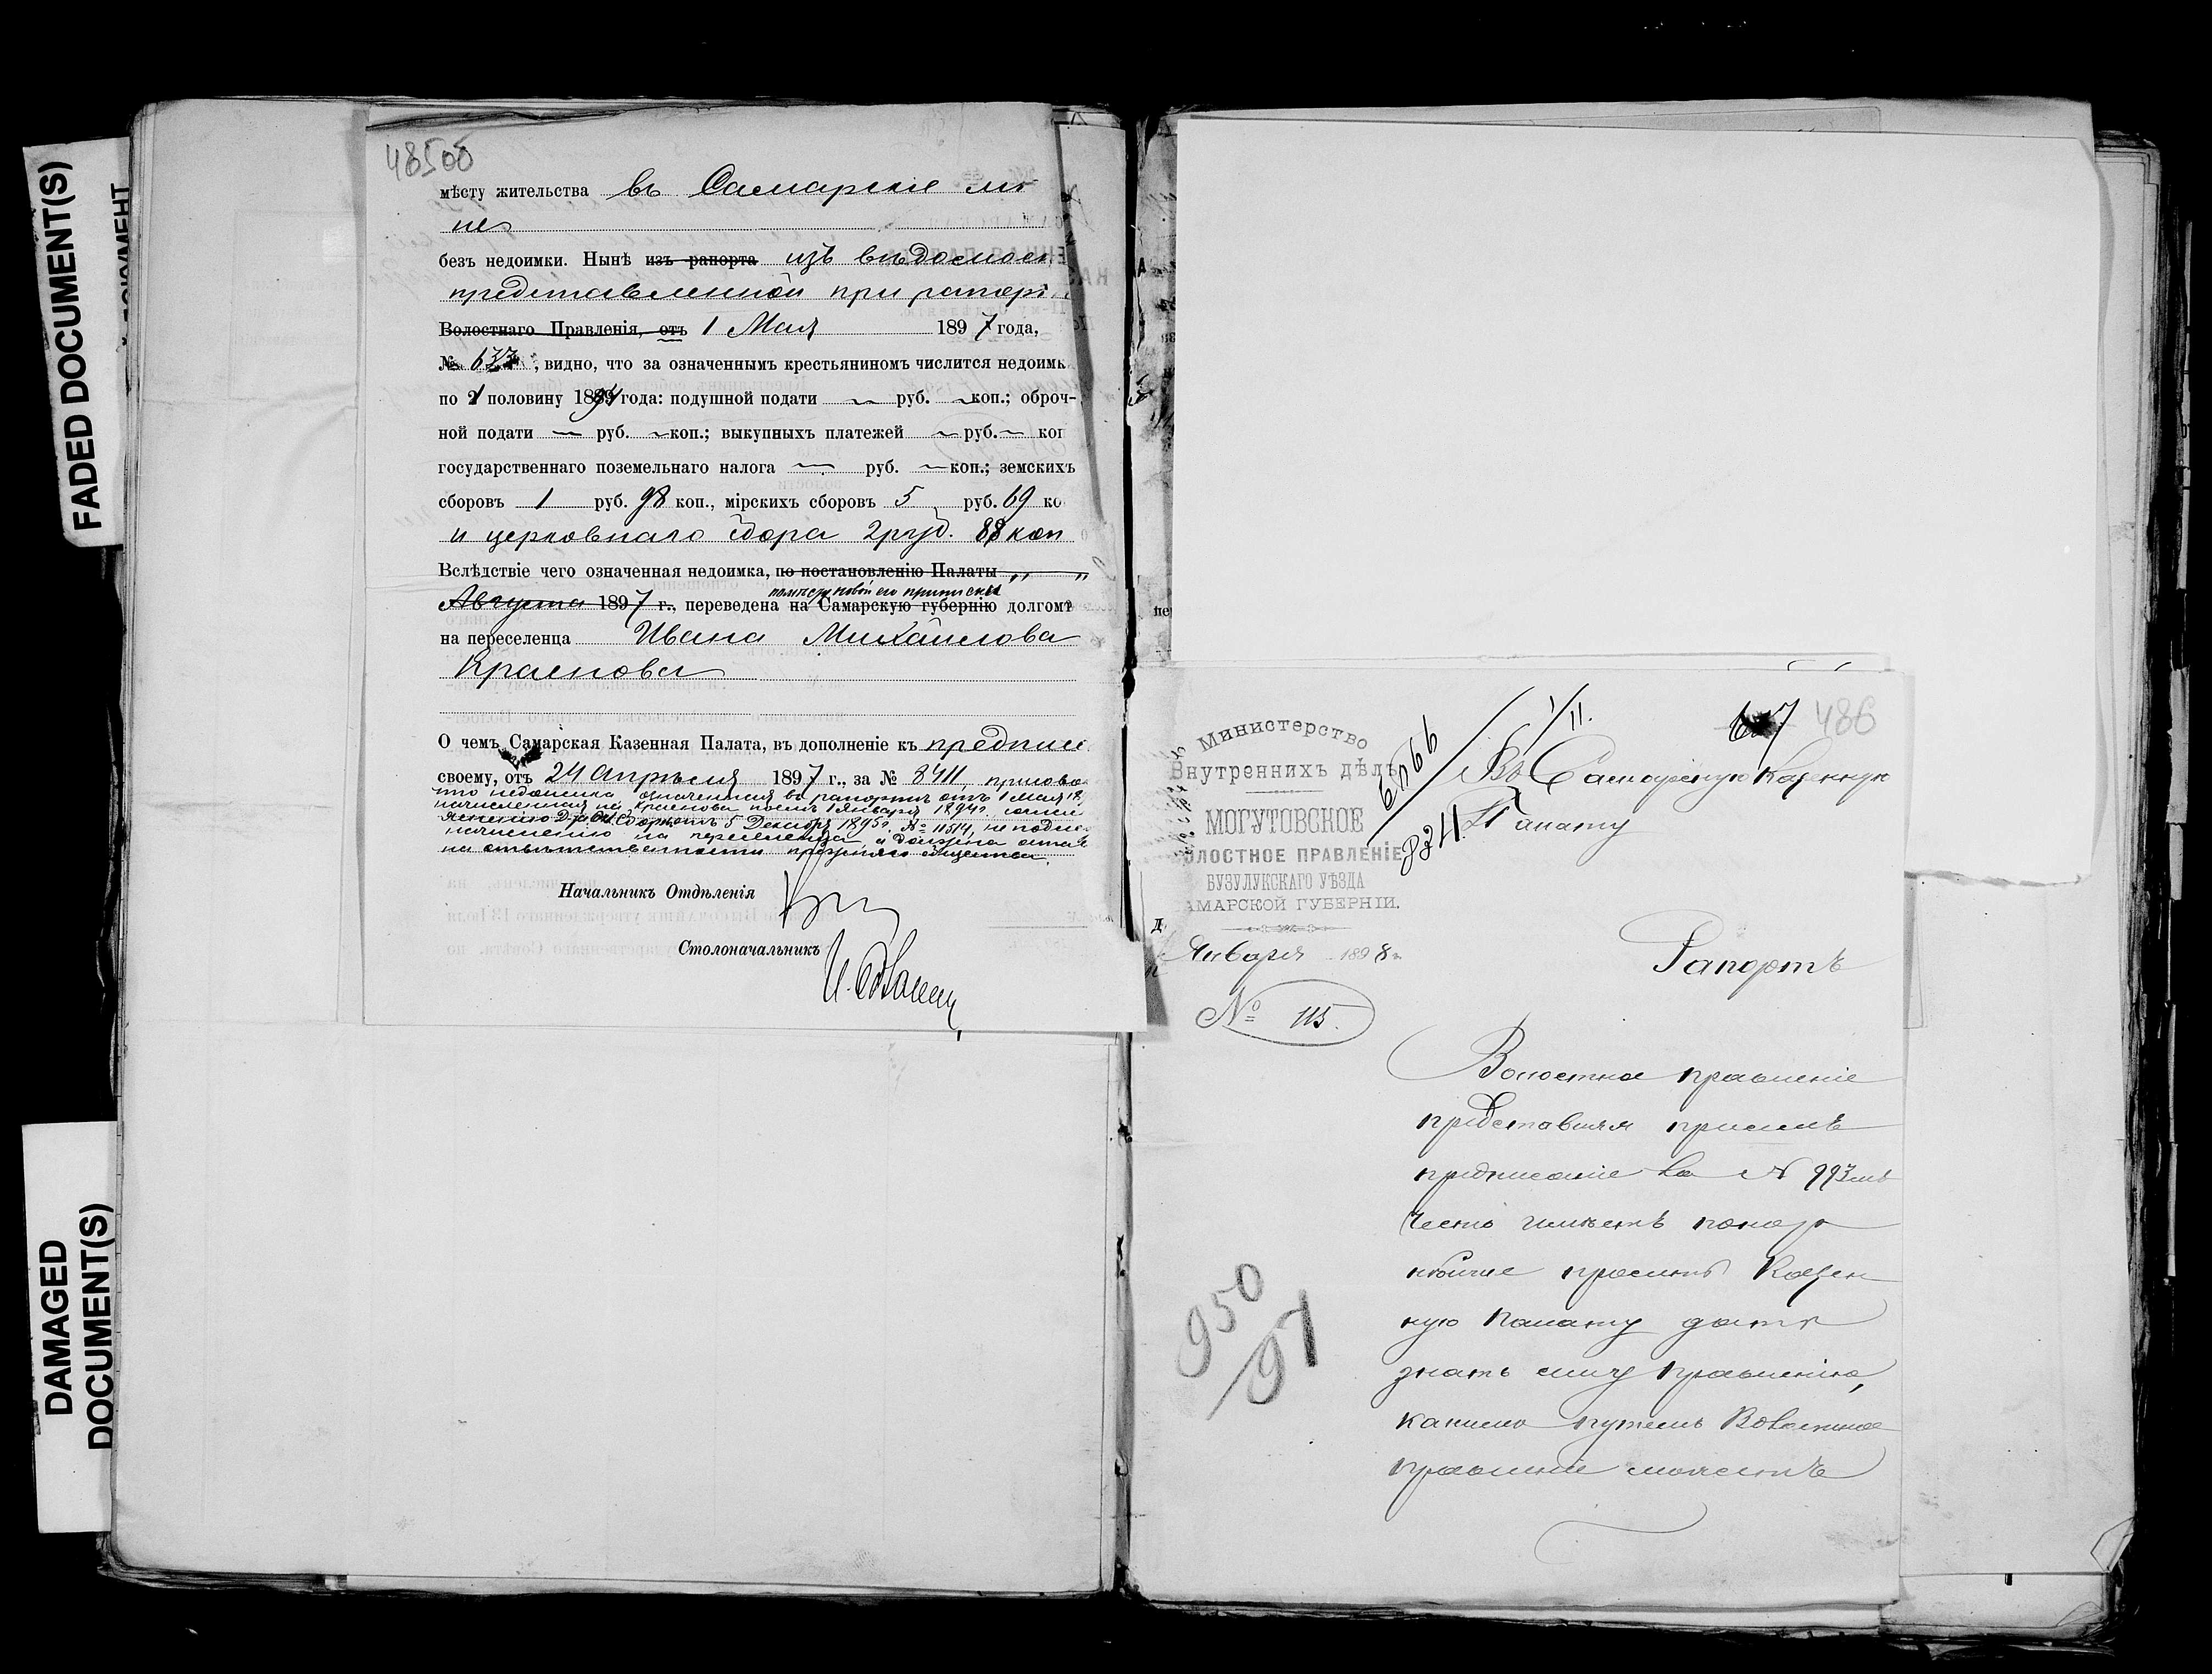 FADED DOCUMENT(S)
DAMAGED
DOCUMENT(S)
мѣсту жительства въ
безъ недоимки. Нынѣ изъ рапорта изъ вѣдомост
представленной при рапорт
Волостнаго Правленія, отъ 1 Мая 1897 года,
№ 633, видно, что за означеннымъ крестьяниномъ числится недоимк
по половину года: подушной подати — руб. — коп.; оброч-
ной подати — руб. — коп.; выкупныхъ платежей — руб. — коп
государственнаго поземельнаго налога — руб. — коп.; земскихъ
сборовъ 1 руб. 98 коп., мірскихъ сборовъ 5 руб. 69 ко
и церковнаго сбора 2 руб. 88 коп
Вслѣдствіе чего означенная недоимка, по постановленію Палаты „ „
по мѣсту новой его приписки
Августа 1897 г., переведена на Самарскую губернію долгомъ
на переселенца Ивана Михайлова
Краснова
О чемъ Самарская Казенная Палата, въ дополненіе къ предписа
своему, отъ 24 Апрѣля 1897 г., за № 8411,
что недоимка означенная въ рапортѣ отъ 1 Мая
1 Января 1894 г.
5 Декабря 1895 г. № 11514, не подле
начисленію на переселенца, а должна оста
на отвѣтственности прежняго общества.
Начальникъ Отдѣленія
Столоначальникъ
486
Министерство
Внутреннихъ дѣлъ
МОГУТОВСКОЕ
ОЛОСТНОЕ ПРАВЛЕНІЕ
БУЗУЛУКСКАГО УѢЗДА
АМАРСКОЙ ГУБЕРНІИ.
Января 1898 г.
№ 115.
1/II.
Въ Самарскую Казенную
Палату
Рапортъ
Волостное правленіе
представляя при семъ
предписаніе за №
честь имѣетъ покор
нѣйше проситъ Казен
ную Палату дать
знать сему правленію,
какимъ путемъ Волостное
правленіе можетъ
950
/97